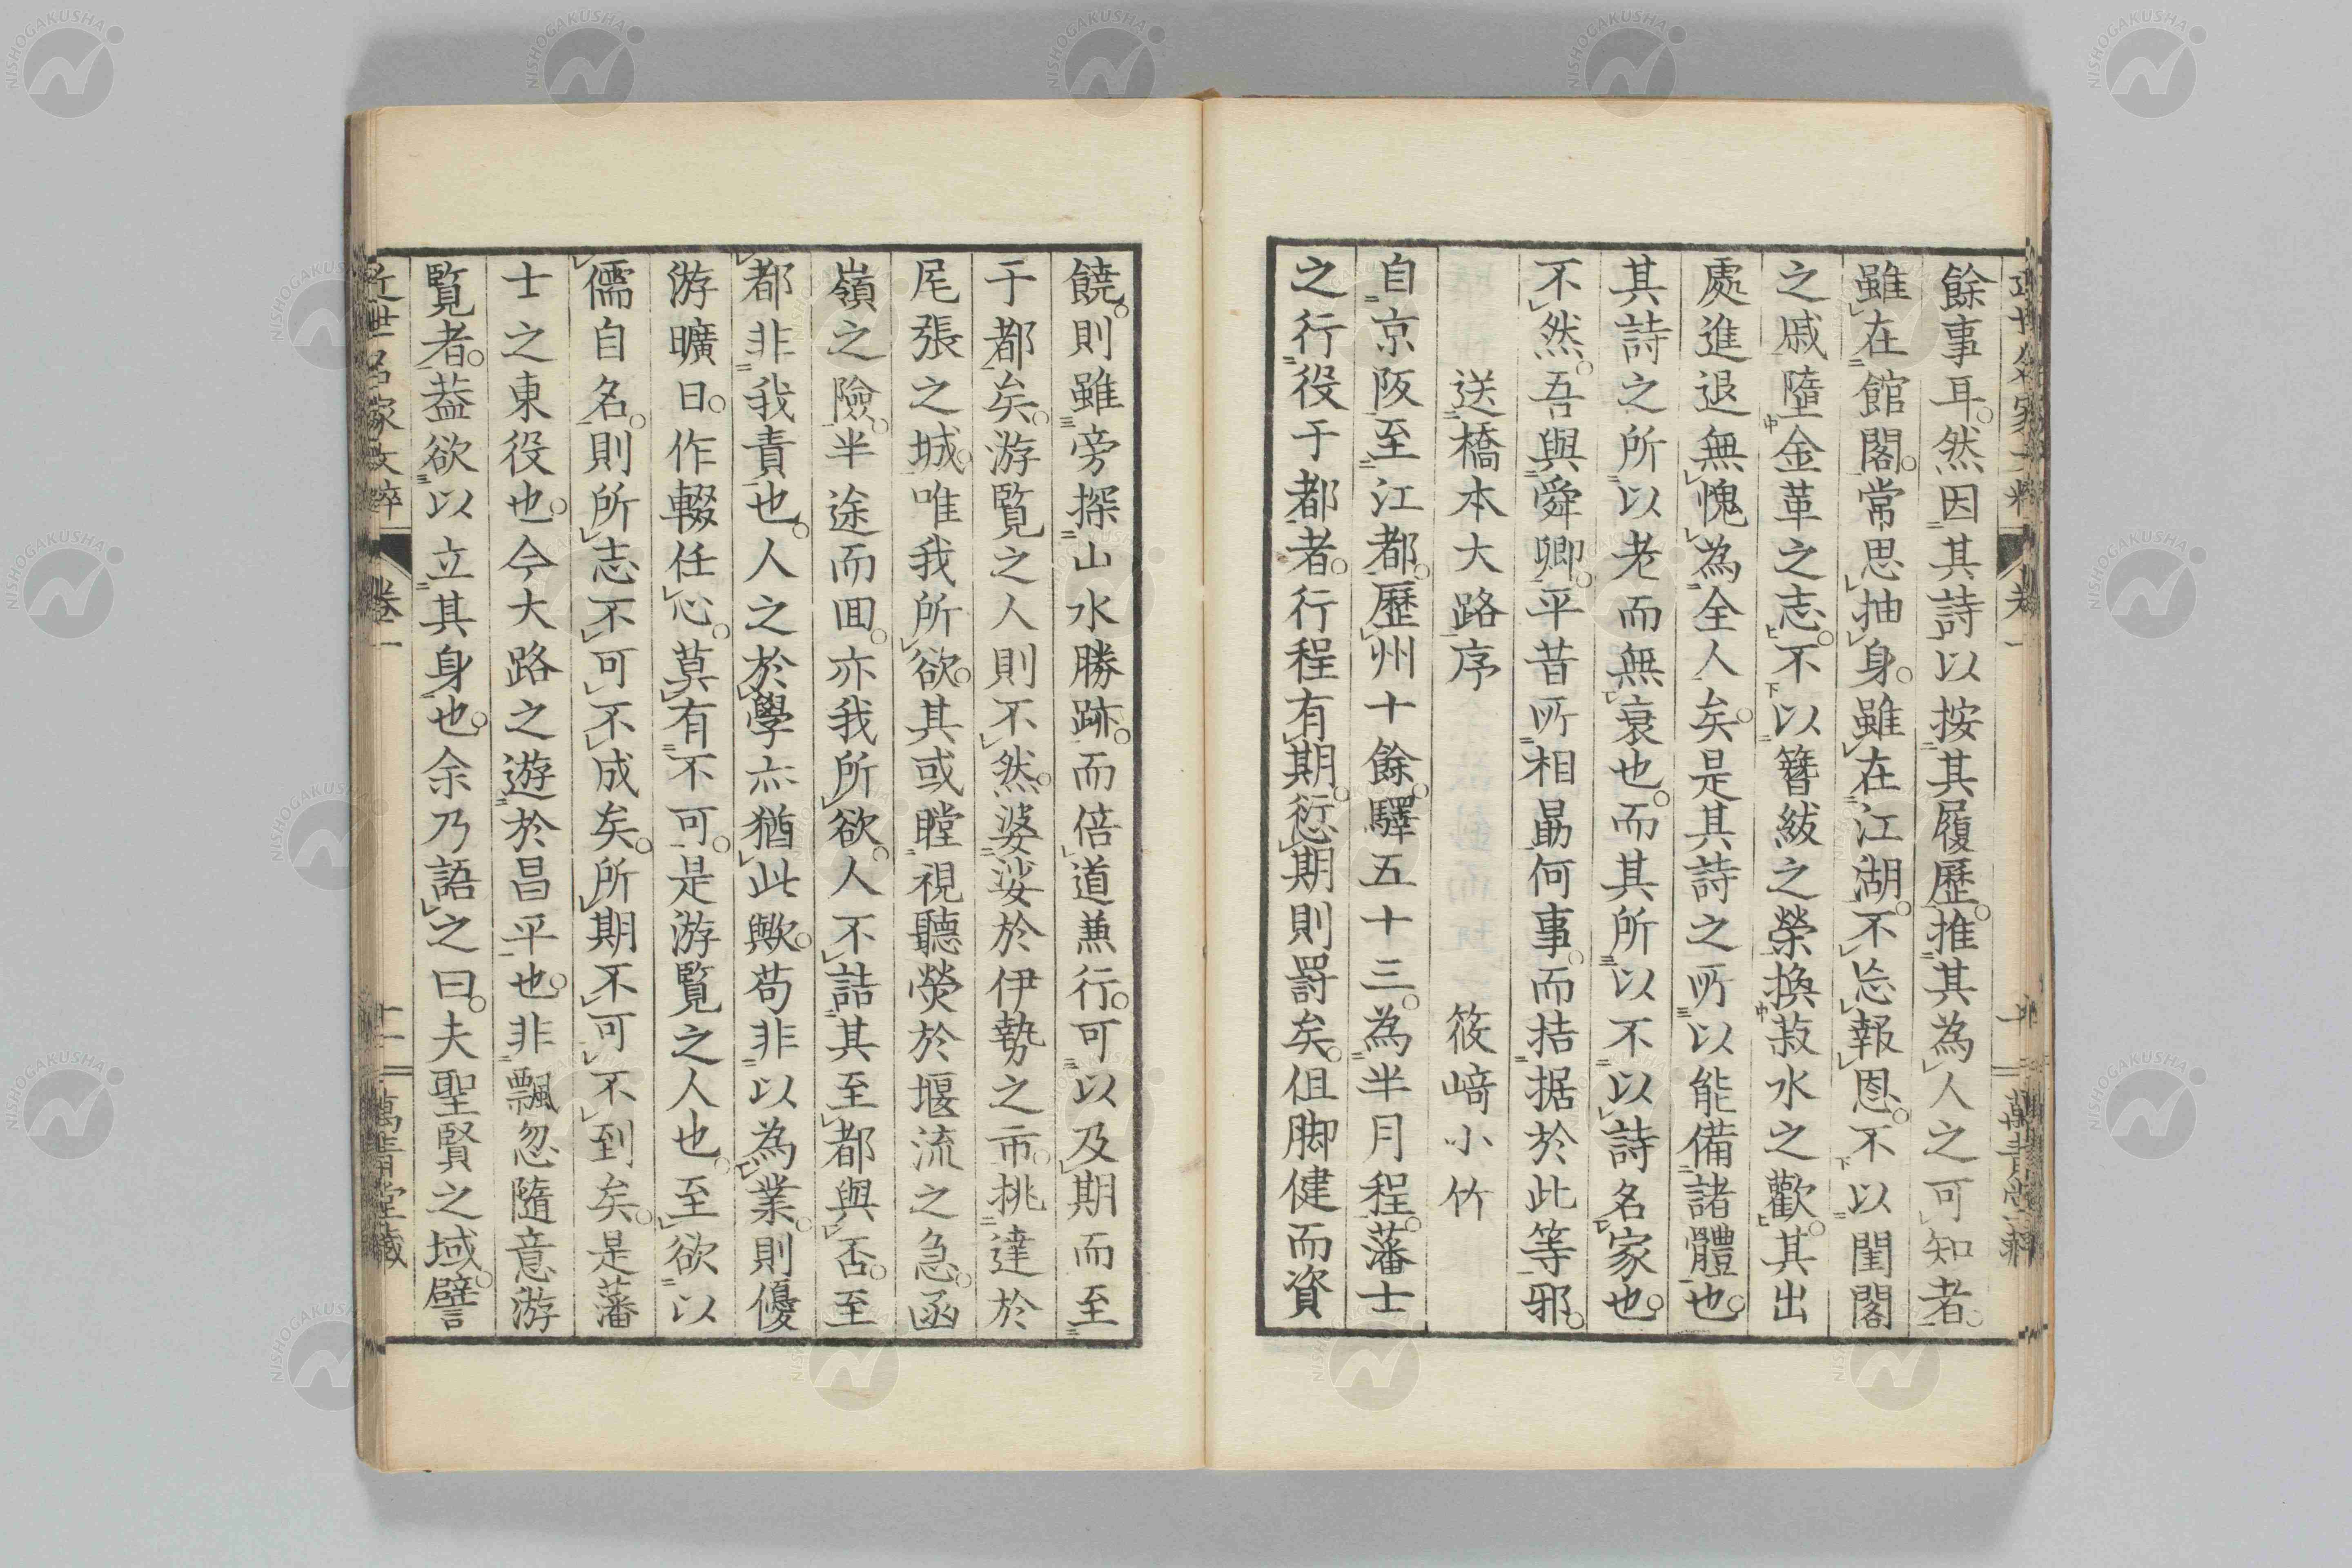 餘事耳。然因其詩以按其履歷。推其為人之可知者。
雖在館閣。常思抽身。雖在江湖。不忘報恩。不以閨閣
之戚墮金革之志。不以簪紱之榮換菽水之歡。其出
處進退無愧為全人矣。是其詩之所以能備諸體也。
其詩之所以老而無衰也。而其所以不以詩名家也。
不然。吾與舜卿。平昔所相勗何事。而拮据於此等邪。
送橋本大路序 筱﨑小竹
自京阪至江都。歷州十餘。驛五十三。為半月程。藩士
之行役于都者。行程有期。愆期則罸矣。但脚健而資
饒。則雖旁探山水勝跡。而倍道兼行。可以及期而至
于都矣。游覧之人則不然。婆娑於伊勢之市。挑達於
尾張之城。唯我所欲。其或瞠視聽熒於堰流之急。函
嶺之險。半途而囬。亦我所欲。人不詰其至都與否。至
都非我責也。人之於學亦猶此歟。苟非以為業。則優
游曠日。作輟任心。莫有不可。是游覧之人也。至欲以
儒自名。則所志不可不成矣。所期不可不到矣。是藩
士之東役也。今大路之遊於昌平也。非飄忽隨意游
覧者。葢欲以立其身也。余乃語之曰。夫聖賢之域。譬
近世名家文粹 卷一 十一 萬青堂藏
NISHOGAKUSHA